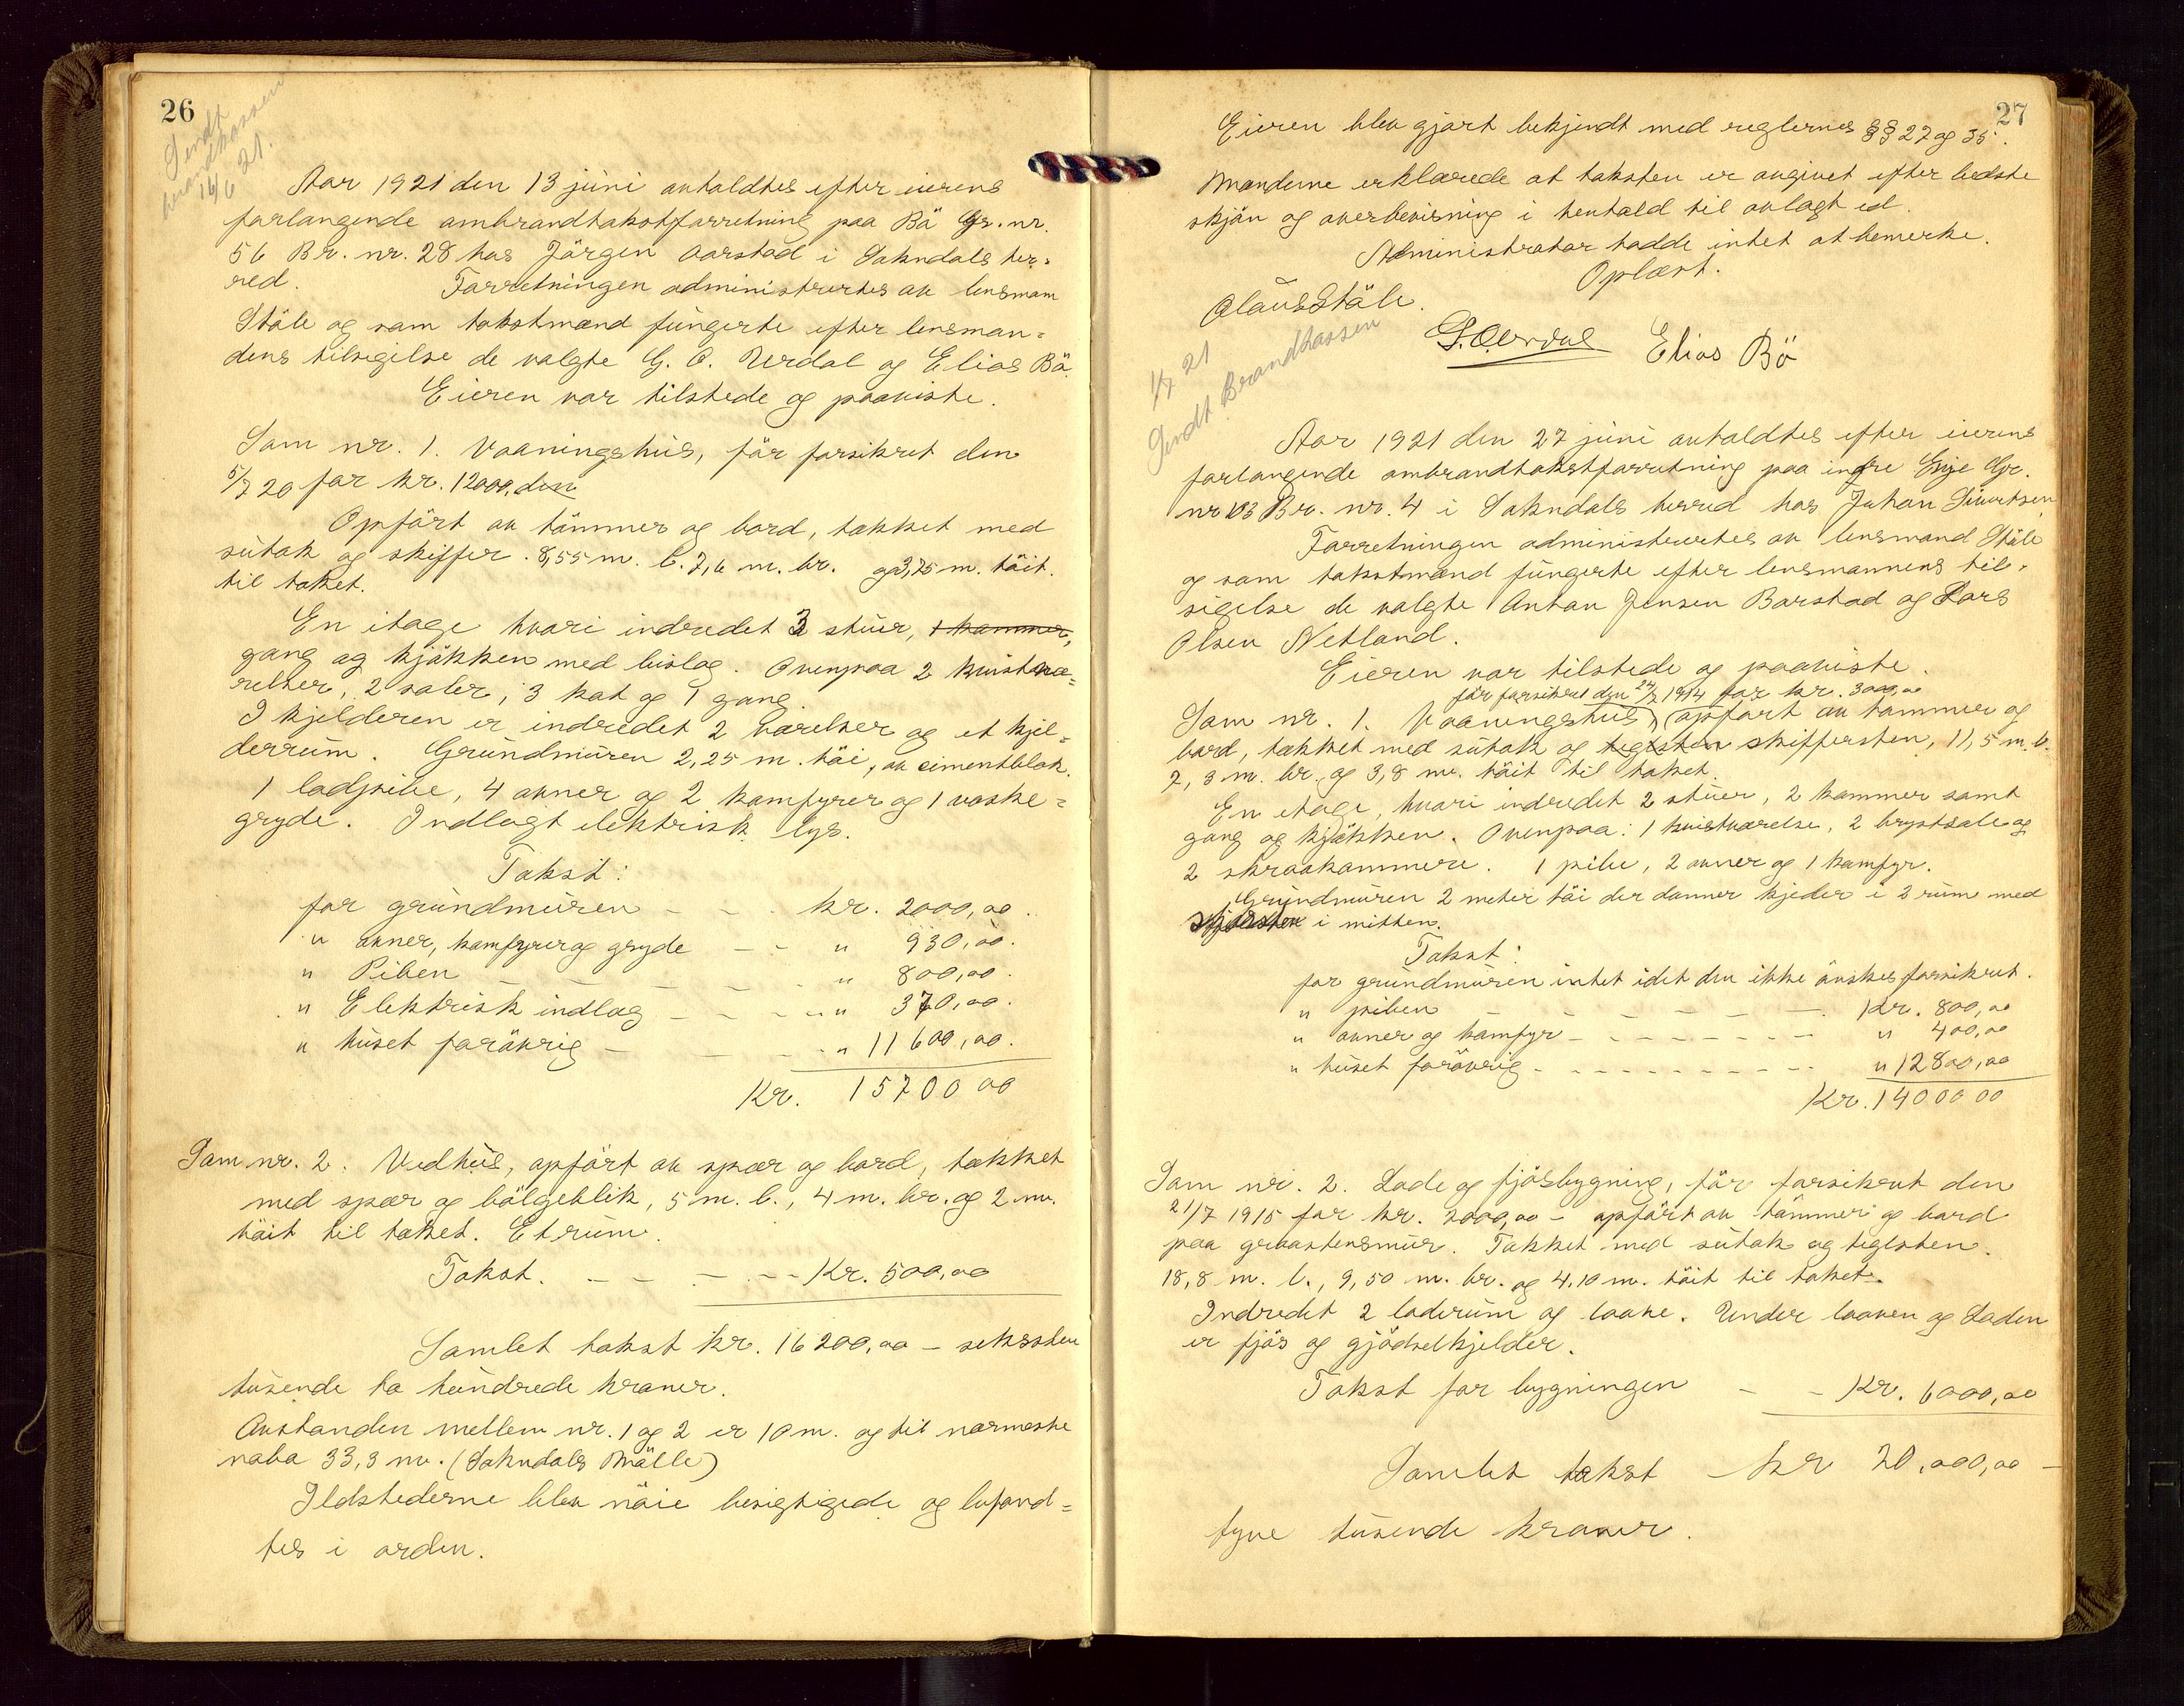 26
Sendt
brandkassen
16/6 21.
Aar 1921 den 13 juni avholdtes efter eierens
forlangende ombrandtakstforretning paa Bö Gr. nr.
56 Br. nr. 28 hos Jörgen Aarstad i Sokndals her-
red. Forretningen administrertes av lensmann
Ståle og som takstmænd fungerte efter lensman-
dens tilsigelse de valgte G. O. Urdal og Elias Bö.
Eieren var tilstede og paaviste.
Som nr. 1. Vaaningshus, för forsikret den
5/7 20 for kr. 12000, den
Opfört av tömmer og bord, tækket med
sutak og skiffer. 8,55 m. l. 7,6 m. br. og 3,75 m. höit
til taket.
En etage hvori indredet 3 stuer, 1 kammer,
gang og kjökken med bislag. Ovenpaa 2 kvistvæ-
relser, 2 saler, 3 kot og 1 gang.
I kjelderen er indredet 2 værelser og et kjel-
derrum. Grundmuren 2,25 m. höi, av cimentblok.
1 lodpibe, 4 ovner og 2 komfyrer og 1 vaske-
gryde. Indlagt elektrisk lys.
Takst:
for grundmuren - - - kr. 2000,00.
" ovner, komfyrer og gryde - - " 930,00.
" Piben - - - - - " 800,00.
" Elektrisk indlag - - - - " 370,00.
" huset forövrig - - - " 11600,00.
Kr. 15700 00
Som nr. 2. Vedhus, opfört av spær og bord, tækket
med spær og bölgeblik, 5 m. l., 4 m. br. og 2 m.
höit til taket. Et rum.
Takst. - - - - - Kr. 500,00
Samlet takst kr. 16200,00 - seksten
tusende to hundrede kroner.
Avstanden mellem nr. 1 og 2 er 10 m. og til nærmeste
nabo 33,3 m. (Sokndals Mölle)
Ildstederne blev nöie besigtigede og befand-
tes i orden.
27
Eieren blev gjort bekjendt med reglernes §§ 27 og 35.
Mændene erklærede at taksten er avgivet efter bedste
skjön og overbevisning i henhold til avlagt ed.
Administrator hadde intet at bemerke.
Oplæst.
Olaus Ståle.
G. O. Urdal Elias Bö
1/7 21
Sendt Brandkassen
Aar 1921 den 27 juni avholdtes efter eierens
forlangende ombrandtakstforretning paa indre Eige Gr.
nr 103 Br. nr. 4 i Sokndals herred hos Johan Sivertsen
Forretningen administrertes av lensmand Ståle
og som takstmænd fungerte efter lensmannens til-
sigelse de valgte Anton Jensen Barstad og Lars
Olsen Netland.
Eieren var tilstede og paaviste.
för forsikret den 24/7 1914 for kr. 3000,00
Som nr. 1. Vaaningshus, opfört av tömmer og
bord, tækket med sutak og teglsten skiffersten, 11,5 m. l.
7,3 m. br. og 3,8 m. höit til taket.
En etage, hvori indredet 2 stuer, 2 kammer samt
gang og kjökken. Ovenpaa: 1 kvistværelse, 2 brystsale og
2 skraakammere. 1 pibe, 2 ovner og 1 komfyr.
Grundmuren 2 meter höi der danner kjeder i 2 rum med
i mitten.
Takst:
for grundmuren intet idet den ikke önskes forsikret.
" piben - - - - - - Kr. 800,00
" ovner og komfyr - - - - - - - " 400,00
" huset forövrig - - - - - - - - - " 12800,00
Kr. 14000 00
Som nr. 2. Lade og fjösbygning, för forsikret den
21/7 1915 for kr. 2000,00 - opfört av tömmer og bord
paa graastensmur. Tækket med sutak og teglsten.
18,8 m. l., 9,50 m. br. og 4,10 m. höit til taket.
Indredet 2 laderum og laave. Under laaven og Laden
er fjös og gjödselkjelder.
Takst for bygningen - - Kr. 6000,00
Samlet takst - kr 20,000,00 -
tyve tusende kroner.